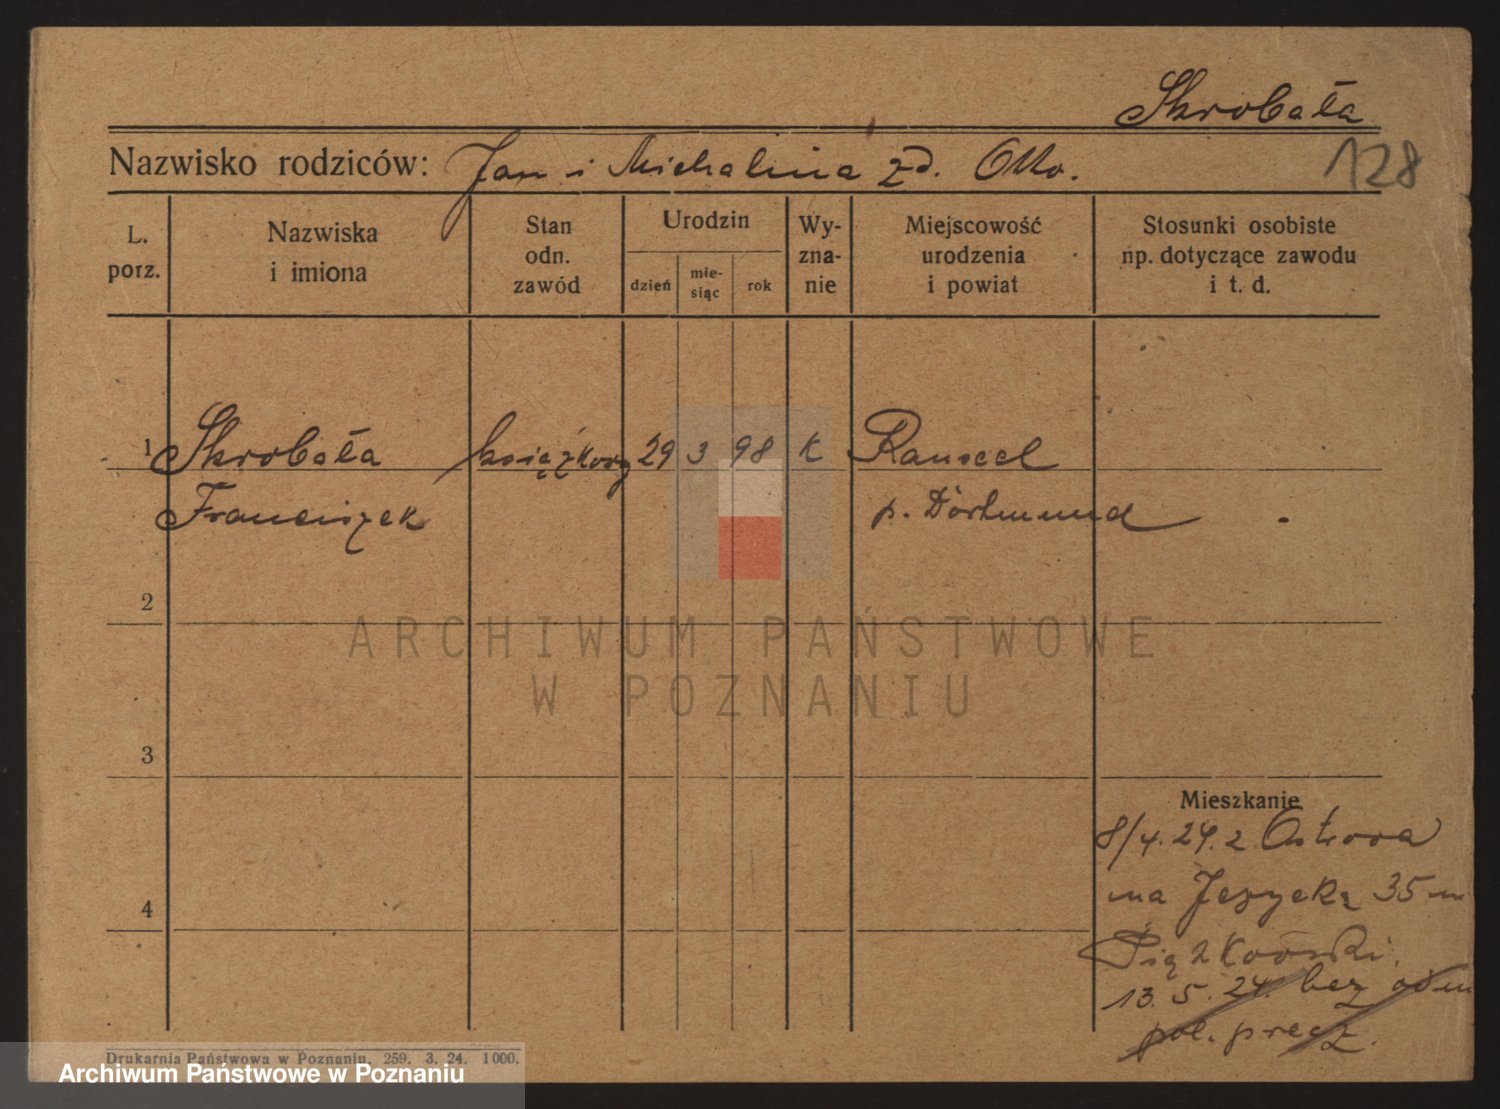 Skrobała
Nazwisko rodziców: Jan i Michalina zd. Otto.
128
L. porz.
Nazwiska i imiona
Stan odn. zawód
Urodzin
dzień
mie-siąc
rok
Wy-zna-nie
Miejscowość urodzenia i powiat
Stosunki osobiste np. dotyczące zawodu i t. d.
1 Skrobała książkowy 29 3 98 K Rauxel
Franciszek p. Dortmund
2
3
4
Mieszkanie
8/4.24. z Ostrowa
na 35 m
13.5.24. bez odm
pol. precz.
Drukarnia Państwowa w Poznaniu. 259. 3. 24. 1000.
ARCHIWUM PAŃSTWOWE
W POZNANIU
Archiwum Państwowe w Poznaniu